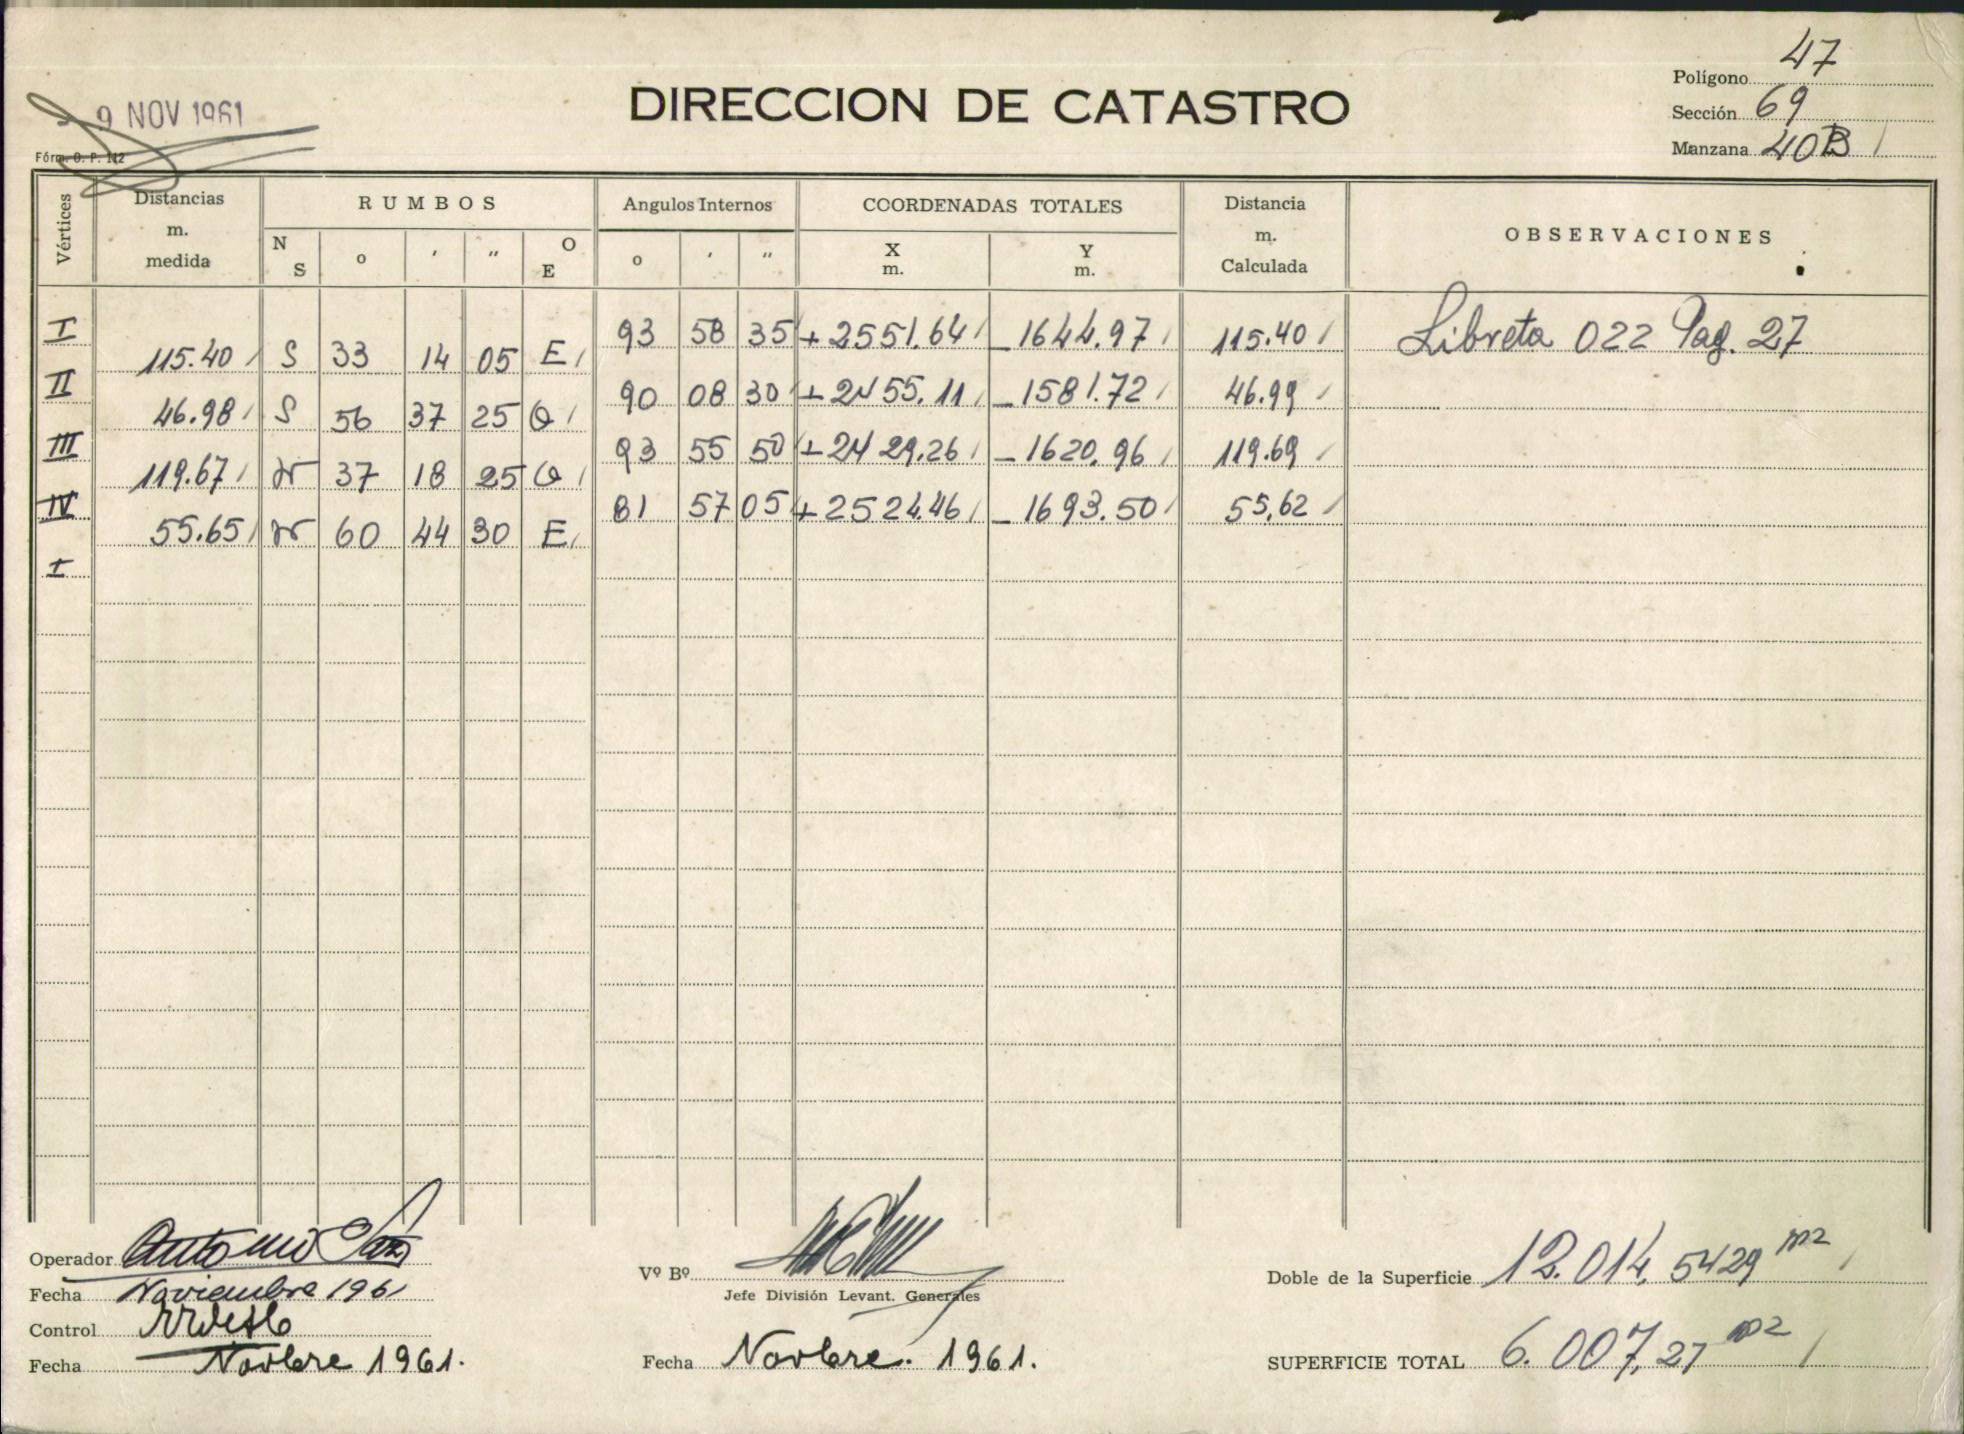 47
Polígono
DIRECCION DE CATASTRO
9 NOV 1961
Sección 69
Fórm. O. P. 112
Manzana 40B /
Vértices Distancias m. medida RUMBOS Angulos Internos COORDENADAS TOTALES Distancia m. Calculada OBSERVACIONES
N S o ' " O E o ' " X m. Y m.
I 93 58 35 +2551.64 / -1644.97 / 115.40 / Libreta 022 Pag. 27
115.40 / S 33 14 05 E /
II 90 08 30 +2455.11 / -1581.72 / 46.99 /
46.98 / S 56 37 25 O /
III 93 55 50 +2429.26 / -1620.96 / 119.69 /
119.67 / N 37 18 25 O /
IV 81 57 05 +2524.46 / -1693.50 / 55,62 /
55.65 / N 60 44 30 E /
I
Operador Antonio
Fecha Noviembre 1961
Control
Fecha Novbre 1961.
Vº Bº
Jefe División Levant. Generales
Fecha Novbre. 1961.
Doble de la Superficie 12.014,5429 m2 /
SUPERFICIE TOTAL 6.007,27 m2 /